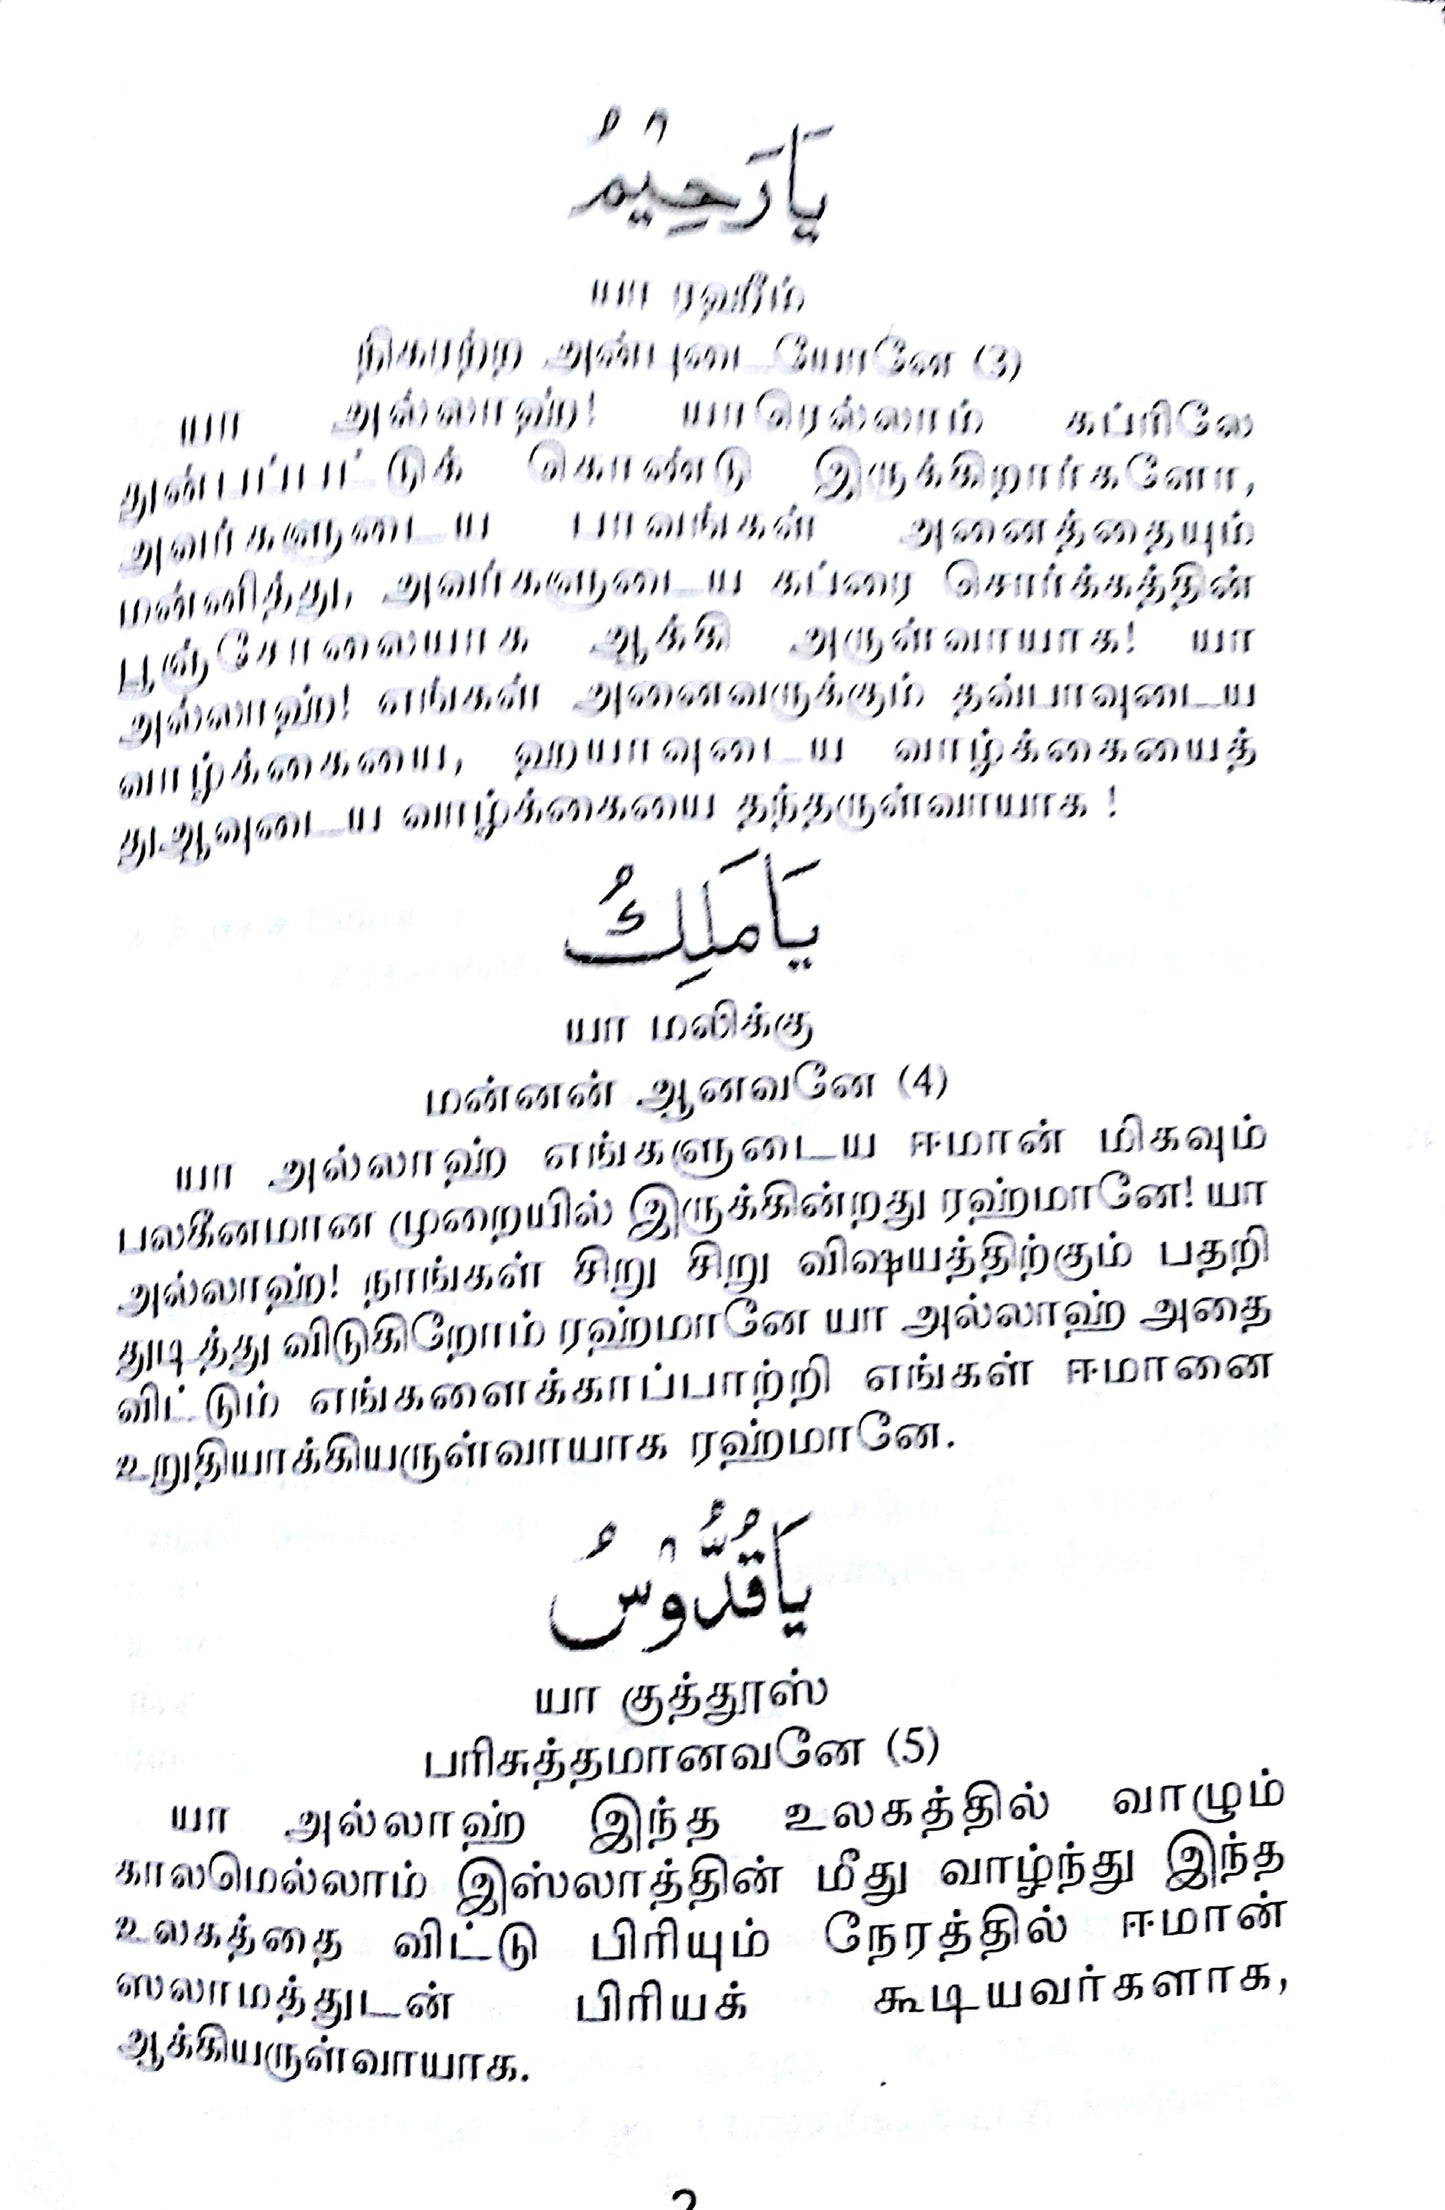 يَارَحِيْمُ
யா ரஹீம்
நிகரற்ற அன்புடையோனே (3)
யா அல்லாஹ்! யாரெல்லாம் கப்ரிலே
துன்பப்பட்டுக் கொண்டு இருக்கிறார்களோ,
அவர்களுடைய பாவங்கள் அனைத்தையும்
மன்னித்து, அவர்களுடைய கப்ரை சொர்க்கத்தின்
பூஞ்சோலையாக ஆக்கி அருள்வாயாக! யா
அல்லாஹ்! எங்கள் அனைவருக்கும் தவ்பாவுடைய
வாழ்க்கையை, ஹயாவுடைய வாழ்க்கையைத்
துஆவுடைய வாழ்க்கையை தந்தருள்வாயாக !
يَامَلِكُ
யா மலிக்கு
மன்னன் ஆனவனே (4)
யா அல்லாஹ் எங்களுடைய ஈமான் மிகவும்
பலகீனமான முறையில் இருக்கின்றது ரஹ்மானே! யா
அல்லாஹ்! நாங்கள் சிறு சிறு விஷயத்திற்கும் பதறி
துடித்து விடுகிறோம் ரஹ்மானே யா அல்லாஹ் அதை
விட்டும் எங்களைக்காப்பாற்றி எங்கள் ஈமானை
உறுதியாக்கியருள்வாயாக ரஹ்மானே.
يَاقُدُّوْسُ
யா குத்தூஸ்
பரிசுத்தமானவனே (5)
யா அல்லாஹ் இந்த உலகத்தில் வாழும்
காலமெல்லாம் இஸ்லாத்தின் மீது வாழ்ந்து இந்த
உலகத்தை விட்டு பிரியும் நேரத்தில் ஈமான்
ஸலாமத்துடன் பிரியக் கூடியவர்களாக,
ஆக்கியருள்வாயாக.
2